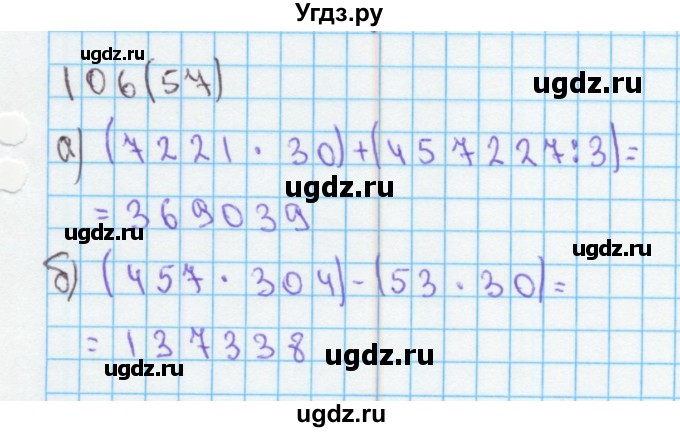 Угдз.ру
ugdz.ru
106(57)
ugdz.ru
а) (7221 · 30)+(457227:3)=
ugdz.ru
ugdz.ru
= 369039
ugdz.ru
ugdz.ru
б) (457 · 304)-(53 · 30)=
= 137338
ugdz.ru
ugdz.ru
ugdz.ru
ugdz.ru